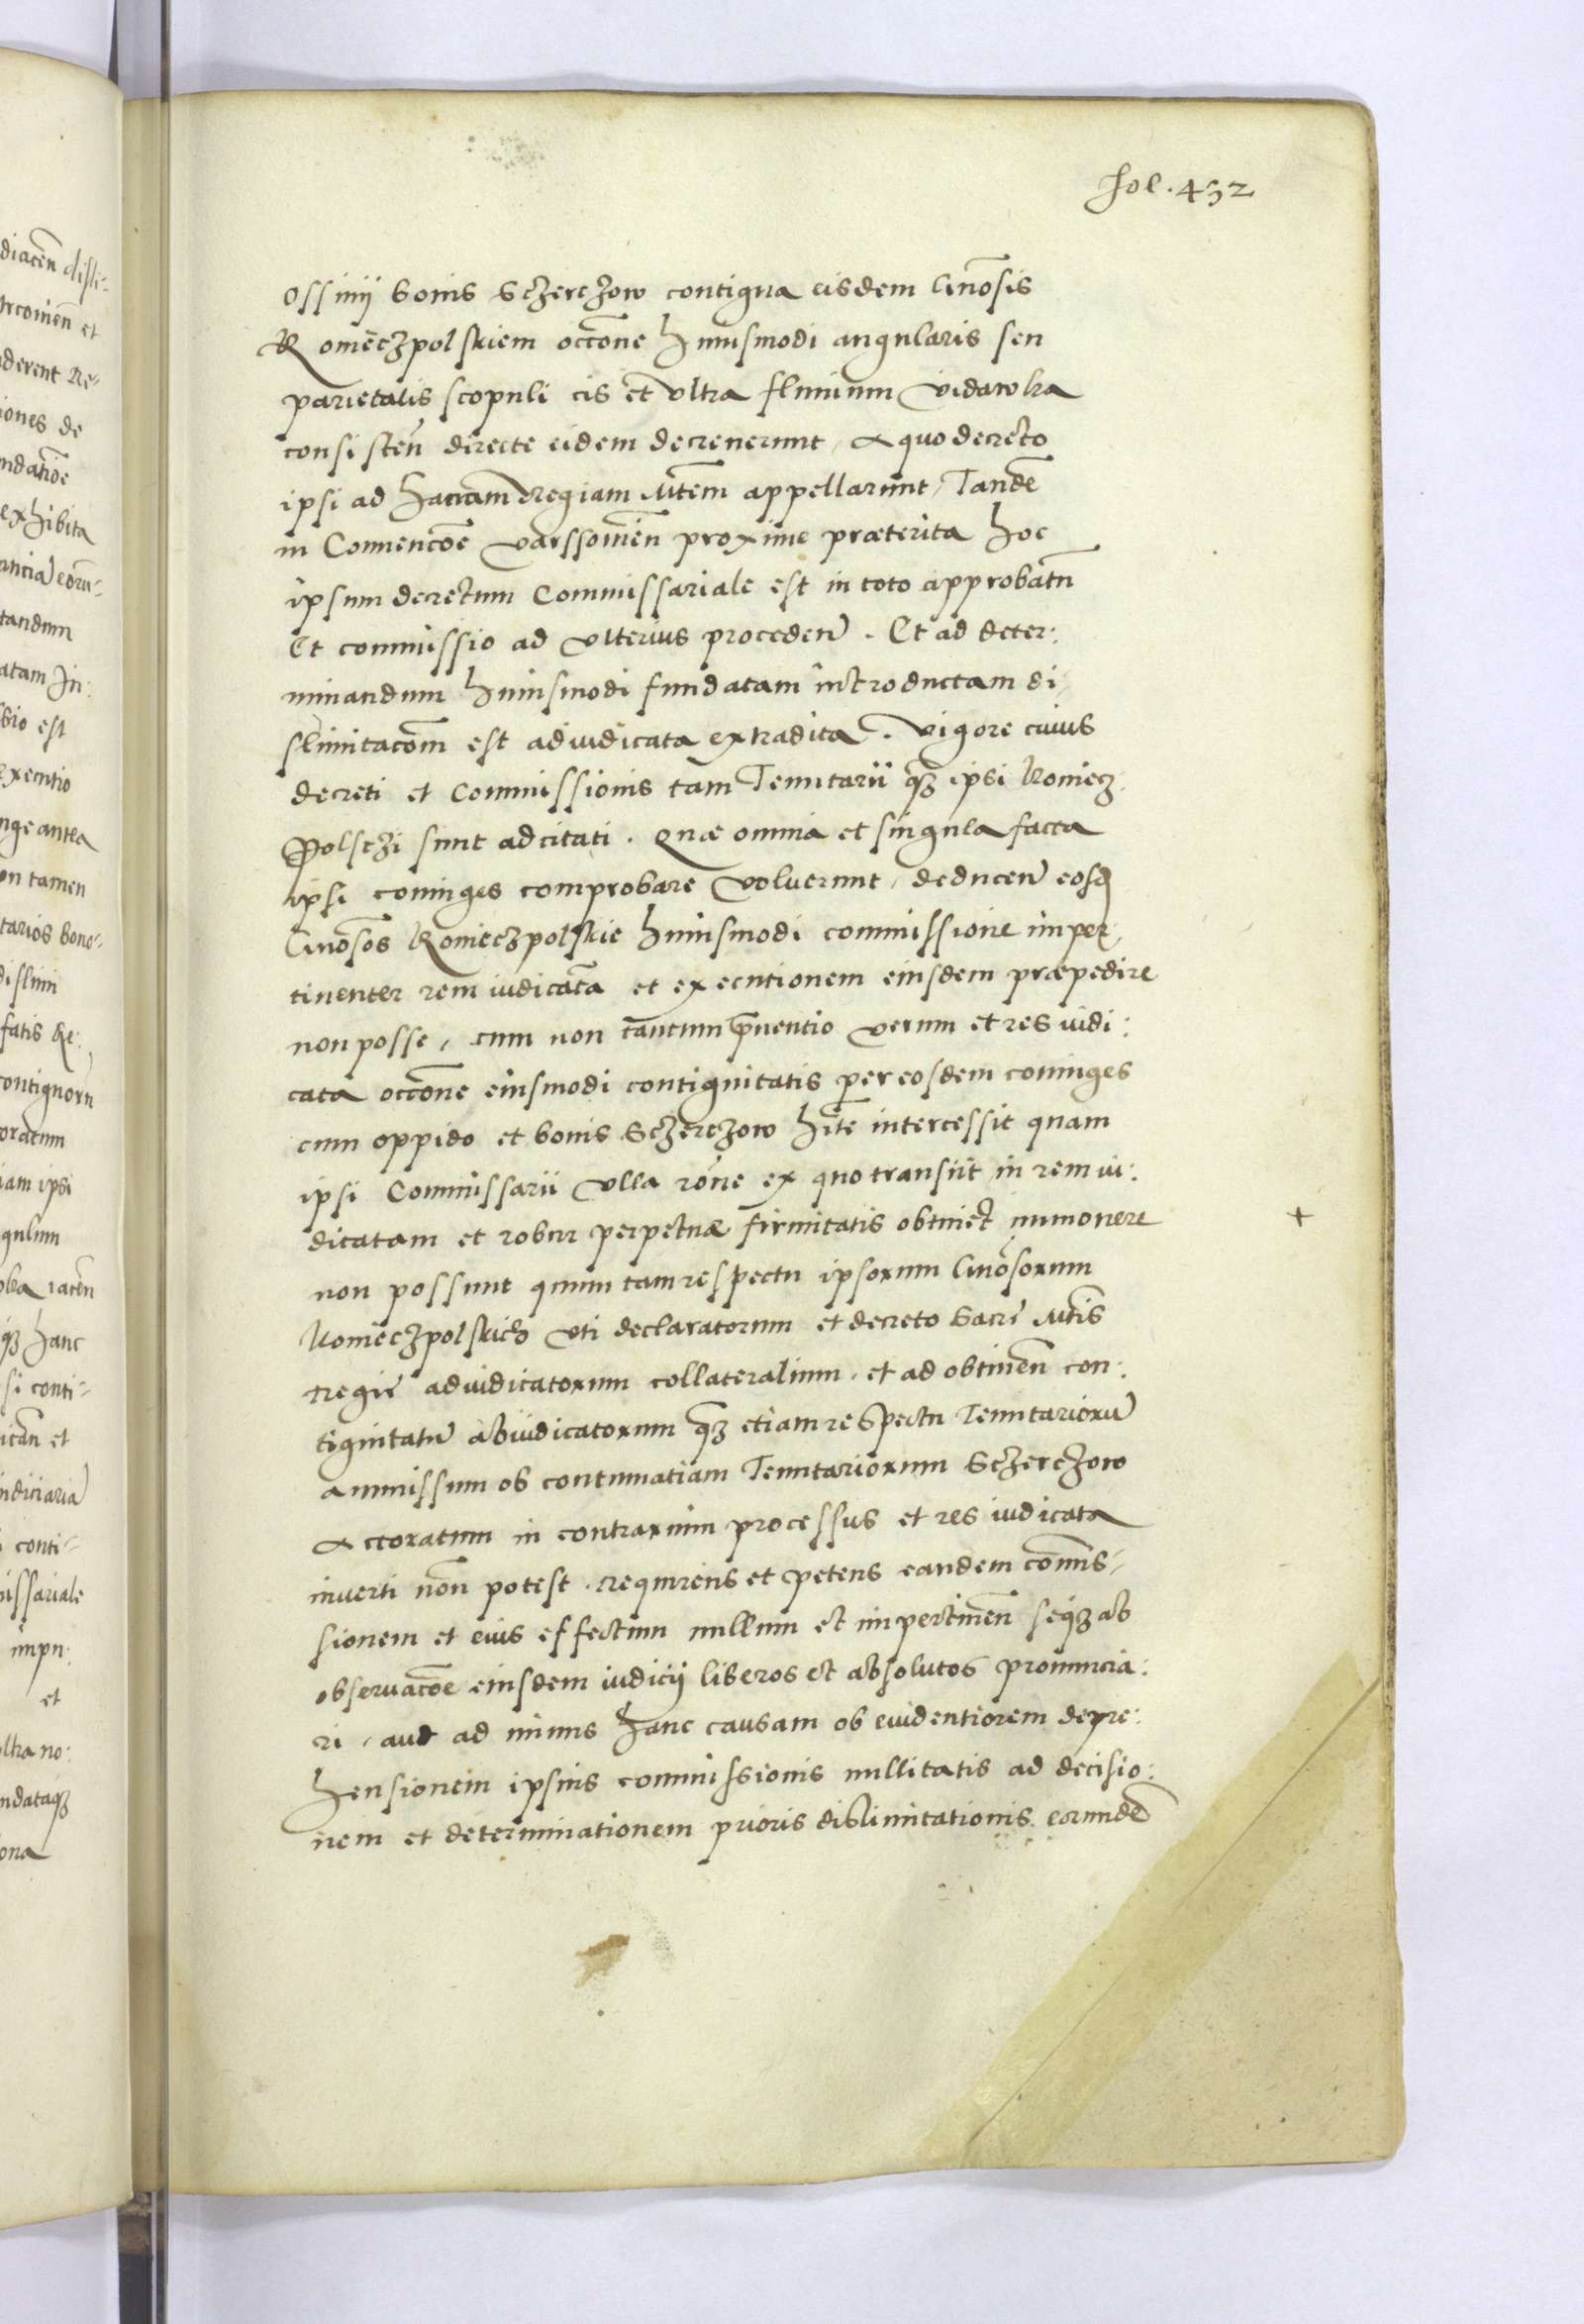 fol. 432
ossinÿ bonis Sczerczow contigua eisdem Gnosis
Konieczpolskiem occone huiusmodi angularis seu
parietalis scopuli cis et vltra fluuium Vidawka
consisten directe eidem decreuerunt, A quo decreto
ipsi ad Sacram Regiam Mtem appellarunt, Tande
in Conuencone Varssouien proxime præterita hoc
ipsum decretum Commissariale est in toto approbatu
Et commissio ad vlterius proceden. Et ad deter:
minandum huiusmodi fundatam introductam di
slimitacom est adiudicata extradita. Vigore cuius
decreti et Commissionis tam Tenutarii qz ipsi Koniecz
Polsczi sunt adcitati. Quæ omnia et singula facta
ipsi coniuges comprobare voluerunt, deducen eosd
Gnosos Konieczpolskie huiusmodi commissione imper,
tinenter rem iudicata et executionem eiusdem præpedire
non posse, cum non tantum puentio verum et res iudi:
cata occone eiusmodi contiguitatis per eosdem coniuges
cum oppido et bonis Sczerczow hite intercessit quam
ipsi Commissarii vlla rone ex quo transiit in rem iu:
dicatam et robur perpetuæ firmitatis obtinet inmouere
non possunt quum tam respectu ipsorum Gnosorum
Konieczpolskich vti declaratorum et decreto Sacre Mtis
Regie adiudicatorum collateralium, et ad obtinen con:
tiguitatu abiudicatorum qz etiam respectu Tenutarioru
ammissum ob contumatiam Tenutariorum Sczerczow
Actoratum in contrarium processus et res iudicata
inuerti non potest. Requirens et petens eandem comis-
sionem et eius effectum nullum et impertinen seqz ab
obseruacoe eiusdem iudicij liberos et absolutos pronuncia:
ri, aut ad minus hanc causam ob euidentiorem depre:
hensionem ipsius commissionis nullitatis ad decisio:
nem et determinationem prioris dislimitationis eorunde
+